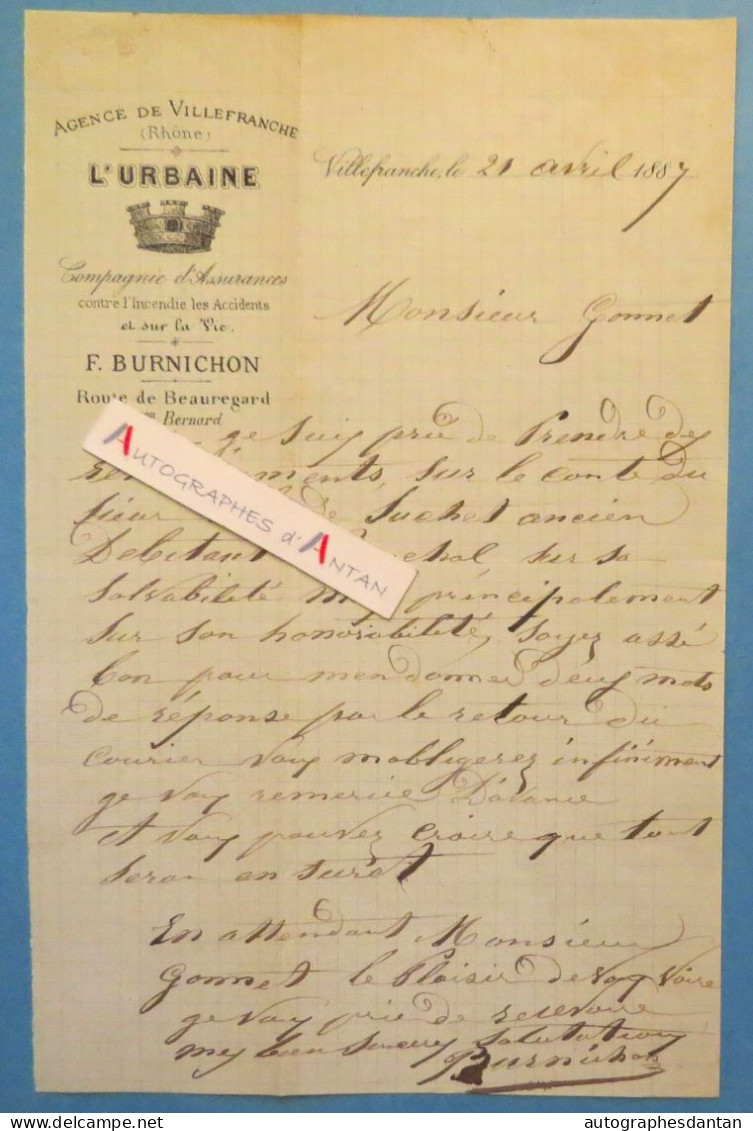 AGENCE DE VILLEFRANCHE
(Rhône)
L'URBAINE
Compagnie d'Assurances
contre l'Incendie les Accidents
et sur la Vie.
F. BURNICHON
Route de Beauregard
on Bernard
Villefranche, le 21 avril 1887
Monsieur Gonnet
ge suis prié de Prendre des
ments, sur le conte du
sieur de Suchet ancien
Debitant sur sa
Solvabilité principalement
Sur son honorabilité, Soyez assé
bon pour men donner deuy mots
de réponse par le retour du
courier Vous mobligerez infiniment
ge Vous remercie D'avance
et Vous pouvez croire que tout
sera en suret
En attendant Monsieur
Gonnet le Plaisir de Vous Voire
ge Vous prie de recevoire
mes bien salutations
Burnichon
AUTOGRAPHES d'ANTAN
autographesdantan